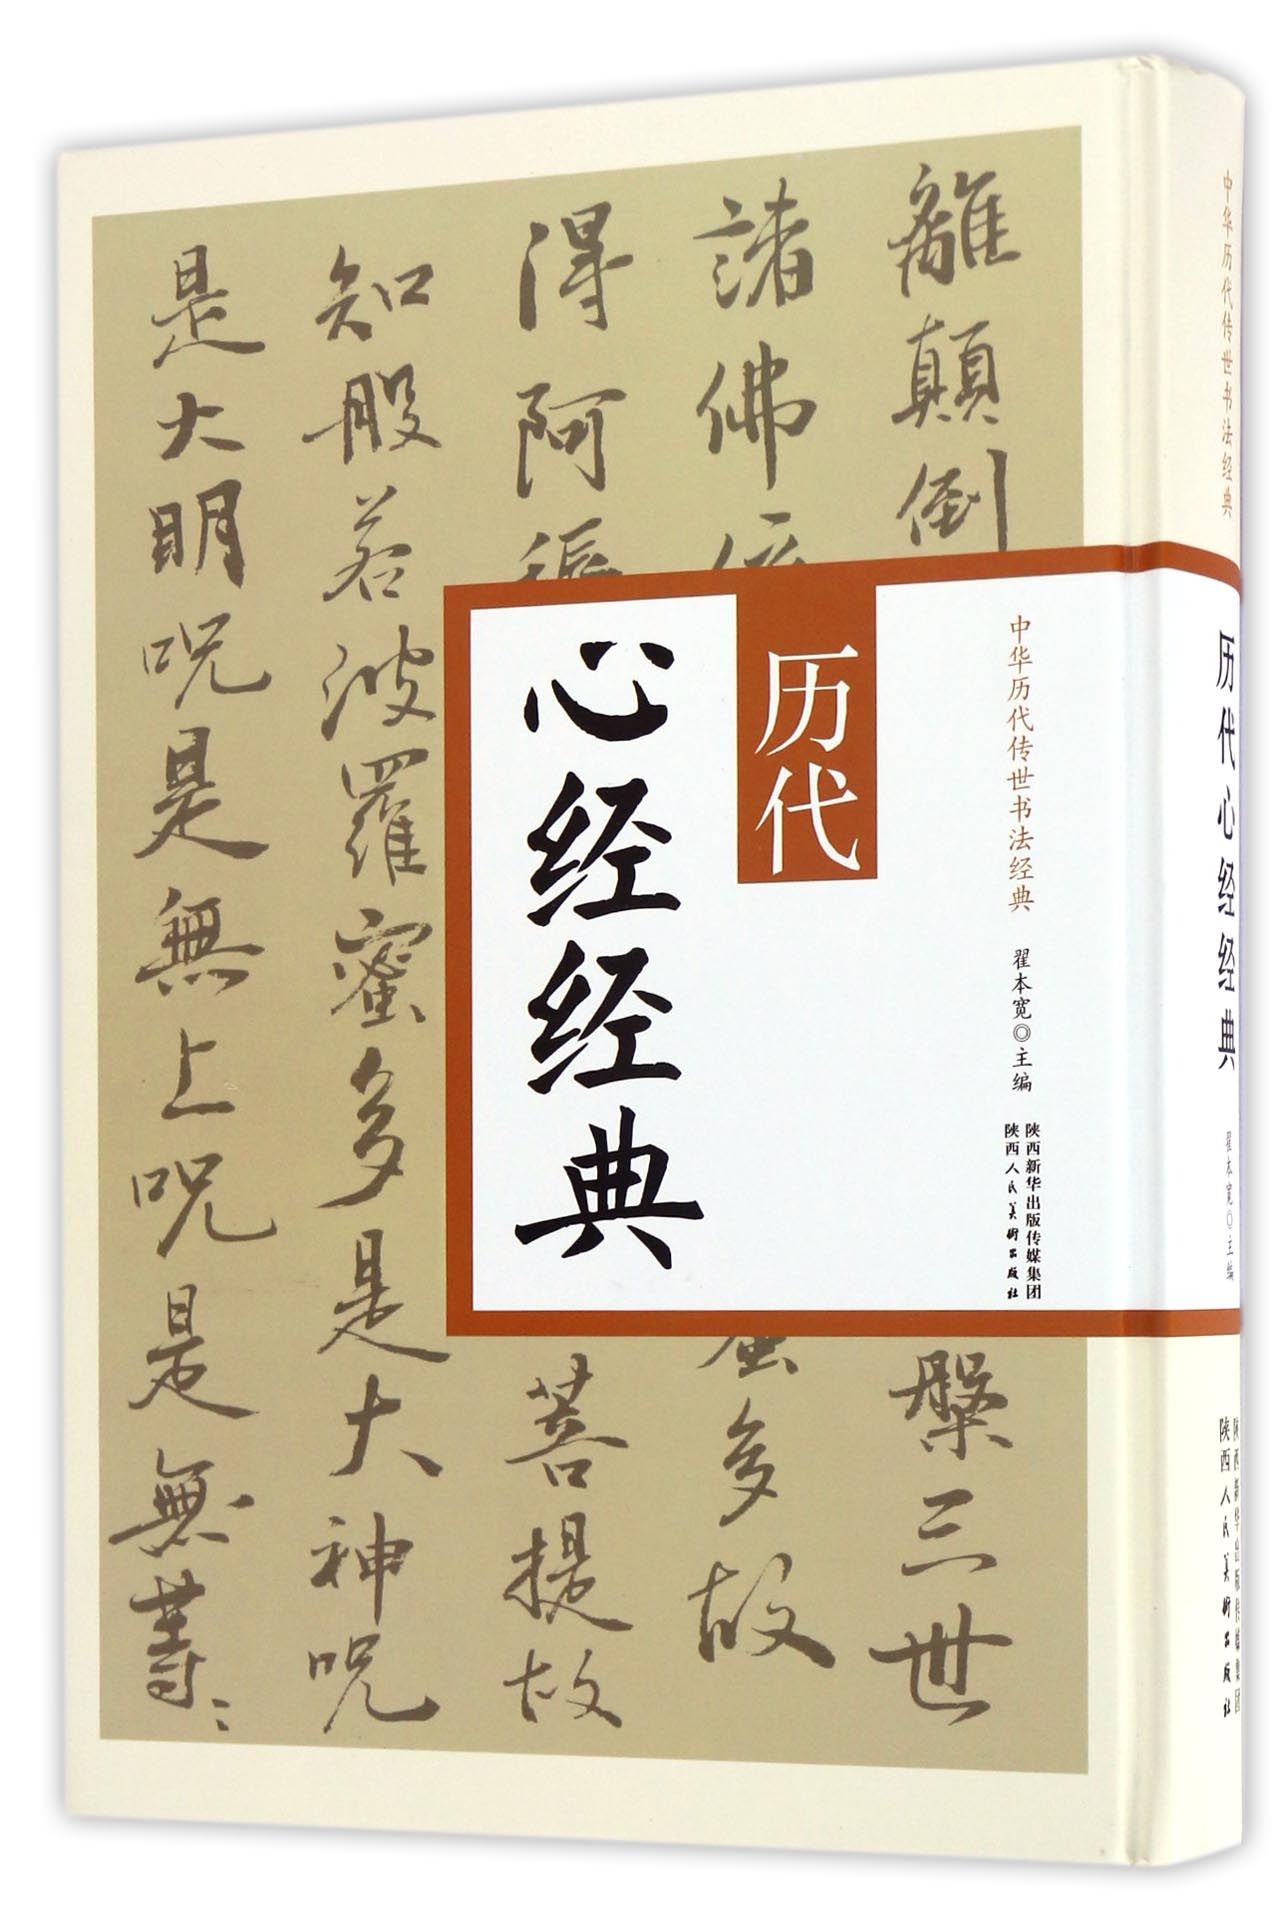 離顛倒
槃三世
諸佛
多故
得阿
菩提故
知般若波羅蜜多是大神呪
是大明呪是無上呪是無等〻
中华历代传世书法经典 翟本宽◎主编
陕西新华出版传媒集团
陕西人民美術出版社
历代
心经经典
中华历代传世书法经典
历代心经经典
翟本宽◎主编
陕西新华出版传媒集团
陕西人民美術出版社